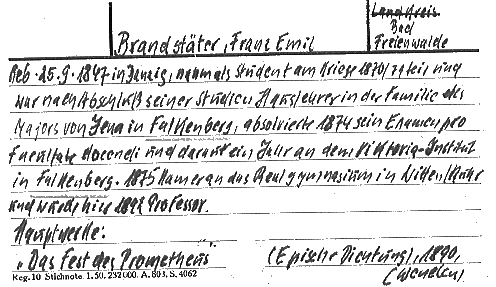 Landkreis
Bad
Freienwalde
Brandstäter, Franz Emil
Geb. 25.9.1847 in Danzig, nahm als Student am Kriege 1870/71 teil und
war nach Abschluß seiner Studien Hauslehrer in der Familie des
Majors von Jena in Falkenberg, absolvierte 1874 sein Examen pro
facultate docendi und darauf ein Jahr an dem Viktoria-Institut
in Falkenberg. 1875 kam er an das Realgymnasium in Witten/Ruhr
und wurde hier 1892 Professor.
Hauptwerke:
"Das Fest des Prometheus" (Epische Dichtung), 1890,
Reg. 10 Stichnote. 1. 50. 232000. A. 803. S. 4062